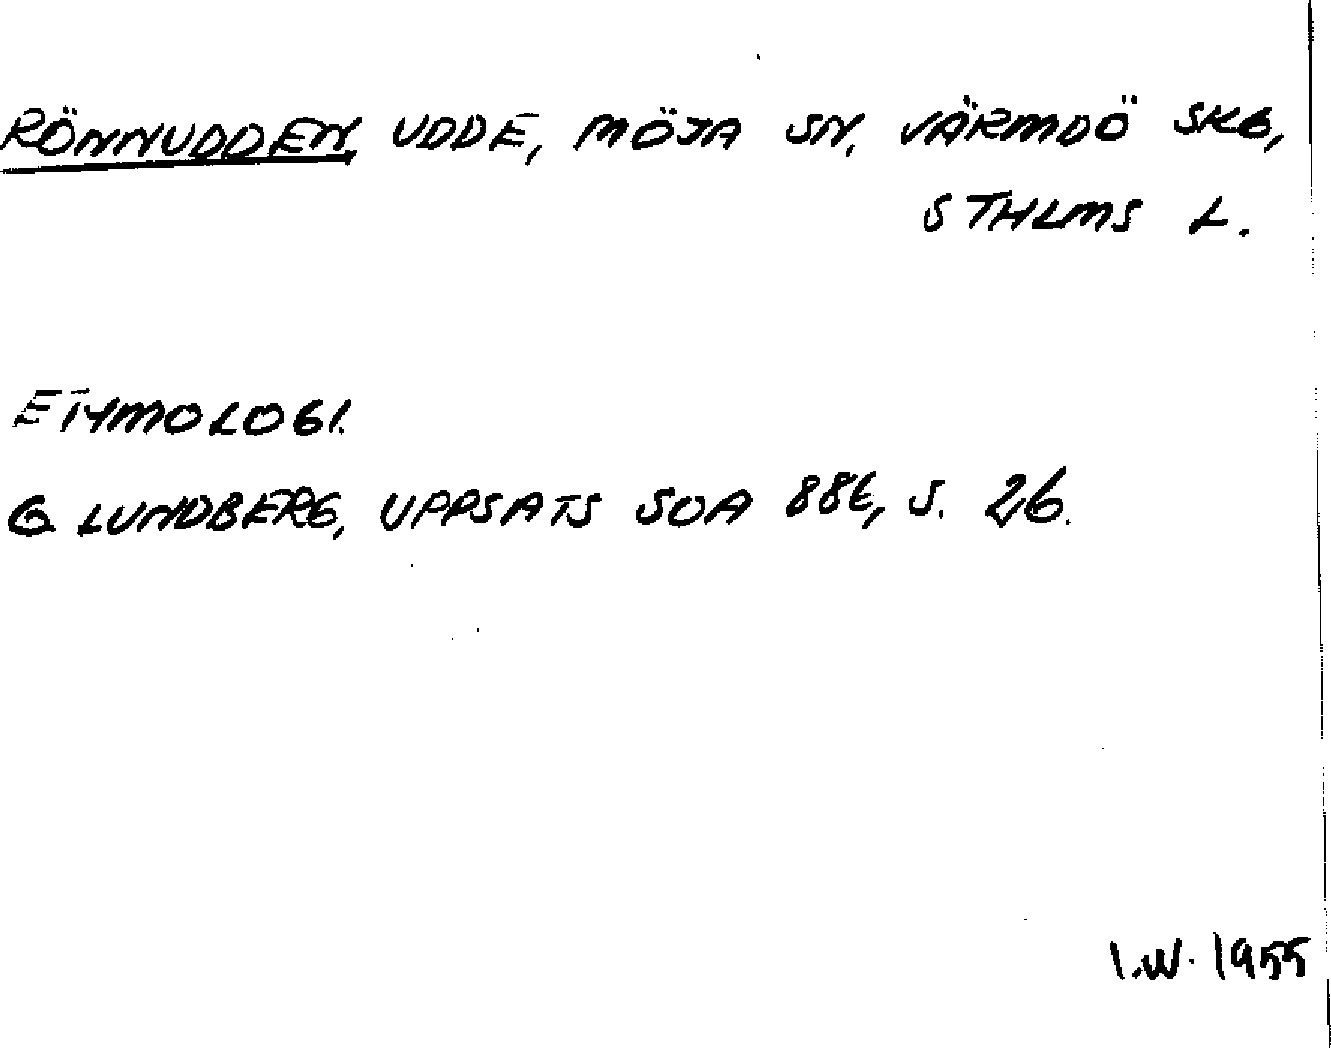 RÖNNUDDEN, UDDE, MÖJA SN, VÄRMDÖ SKG,
STHLMS L.
ETYMOLOGI.
G LUNDBERG, UPPSATS SOA 886, S. 26.
I.W. 1955